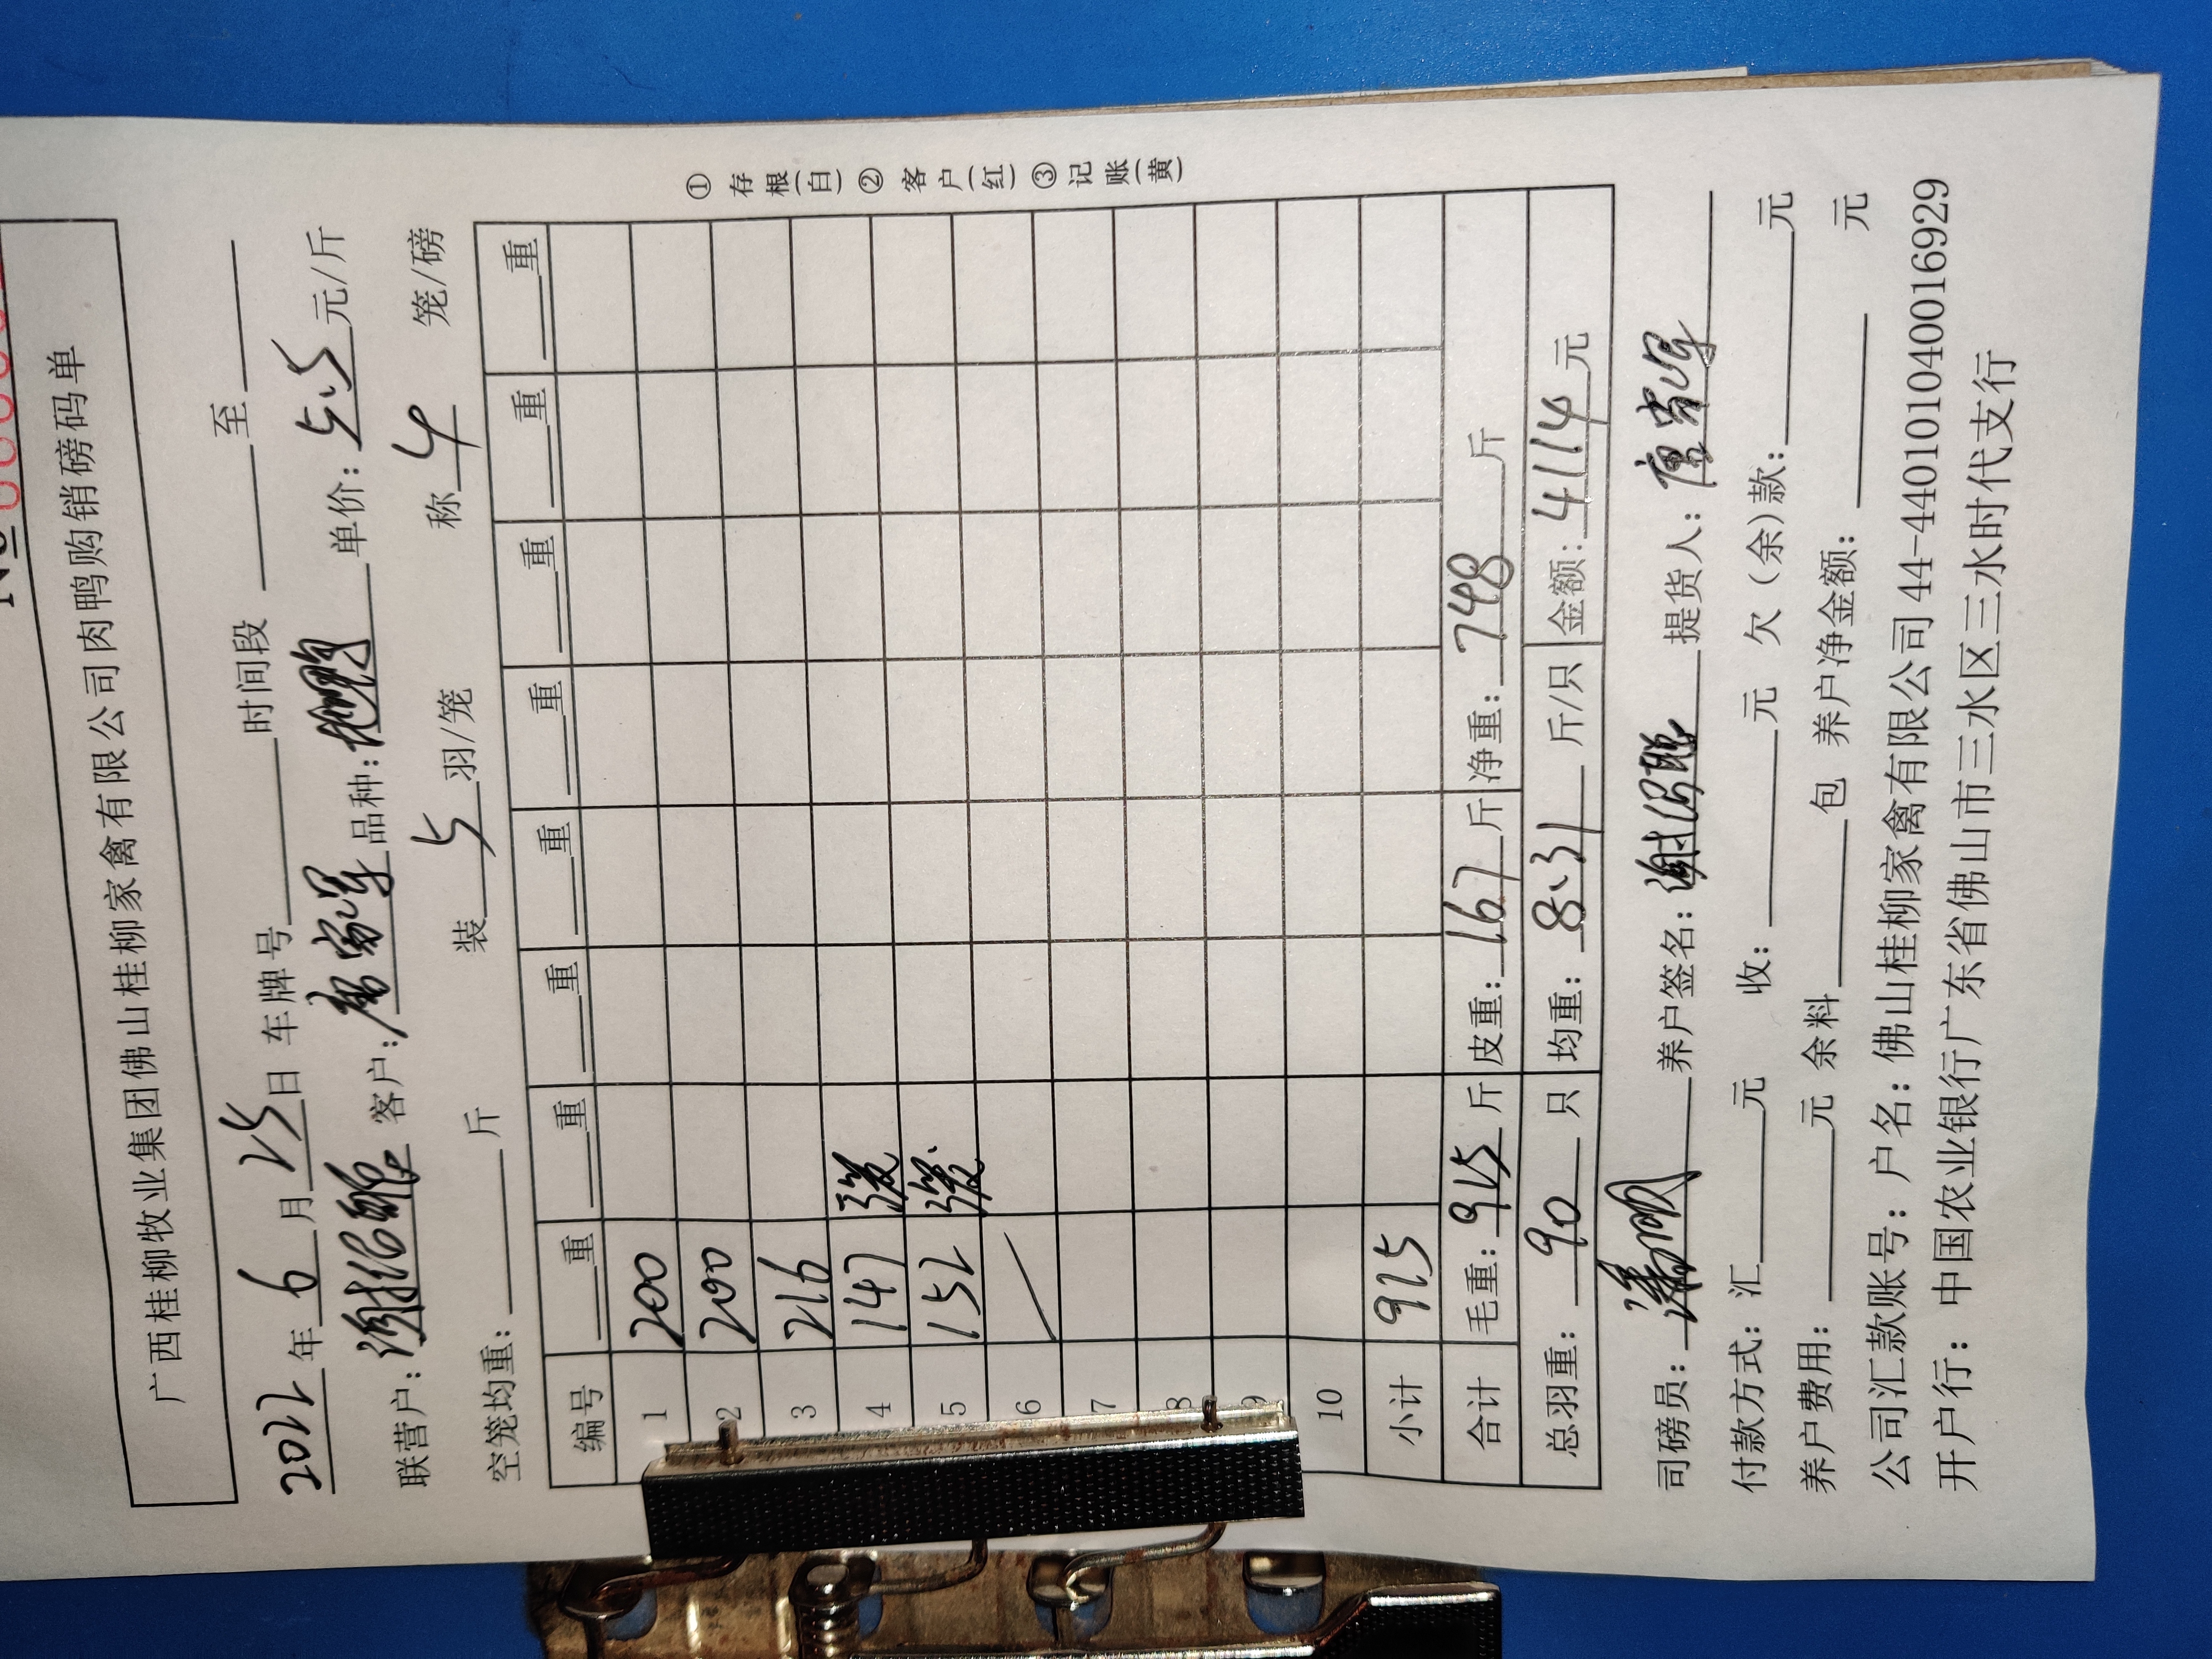 №
广西桂柳牧业集团佛山桂柳家禽有限公司肉鸭购销磅码单
2022年6月25日 车牌号 时间段 至
联营户： 客户： 品种： 单价：5.5元/斤
空笼均重： 斤 装 5 羽/笼 称 4 笼/磅
编号 重 重 重 重 重 重 重 重
1 200
2 200
3 216
4 147
5 152
6
7
8
9
10
小计 915
合计 毛重：915斤 皮重：167斤 净重：748斤
总羽重：90只 均重：8.31斤/只 金额：4114元
①存根(白) ②客户(红) ③记账(黄)
司磅员： 养户签名： 提货人：
付款方式：汇 元 收： 元 欠（余）款： 元
养户费用： 元 余料 包 养户净金额： 元
公司汇款账号：户名：佛山桂柳家禽有限公司 44-440101040016929
开户行：中国农业银行广东省佛山市三水区三水时代支行